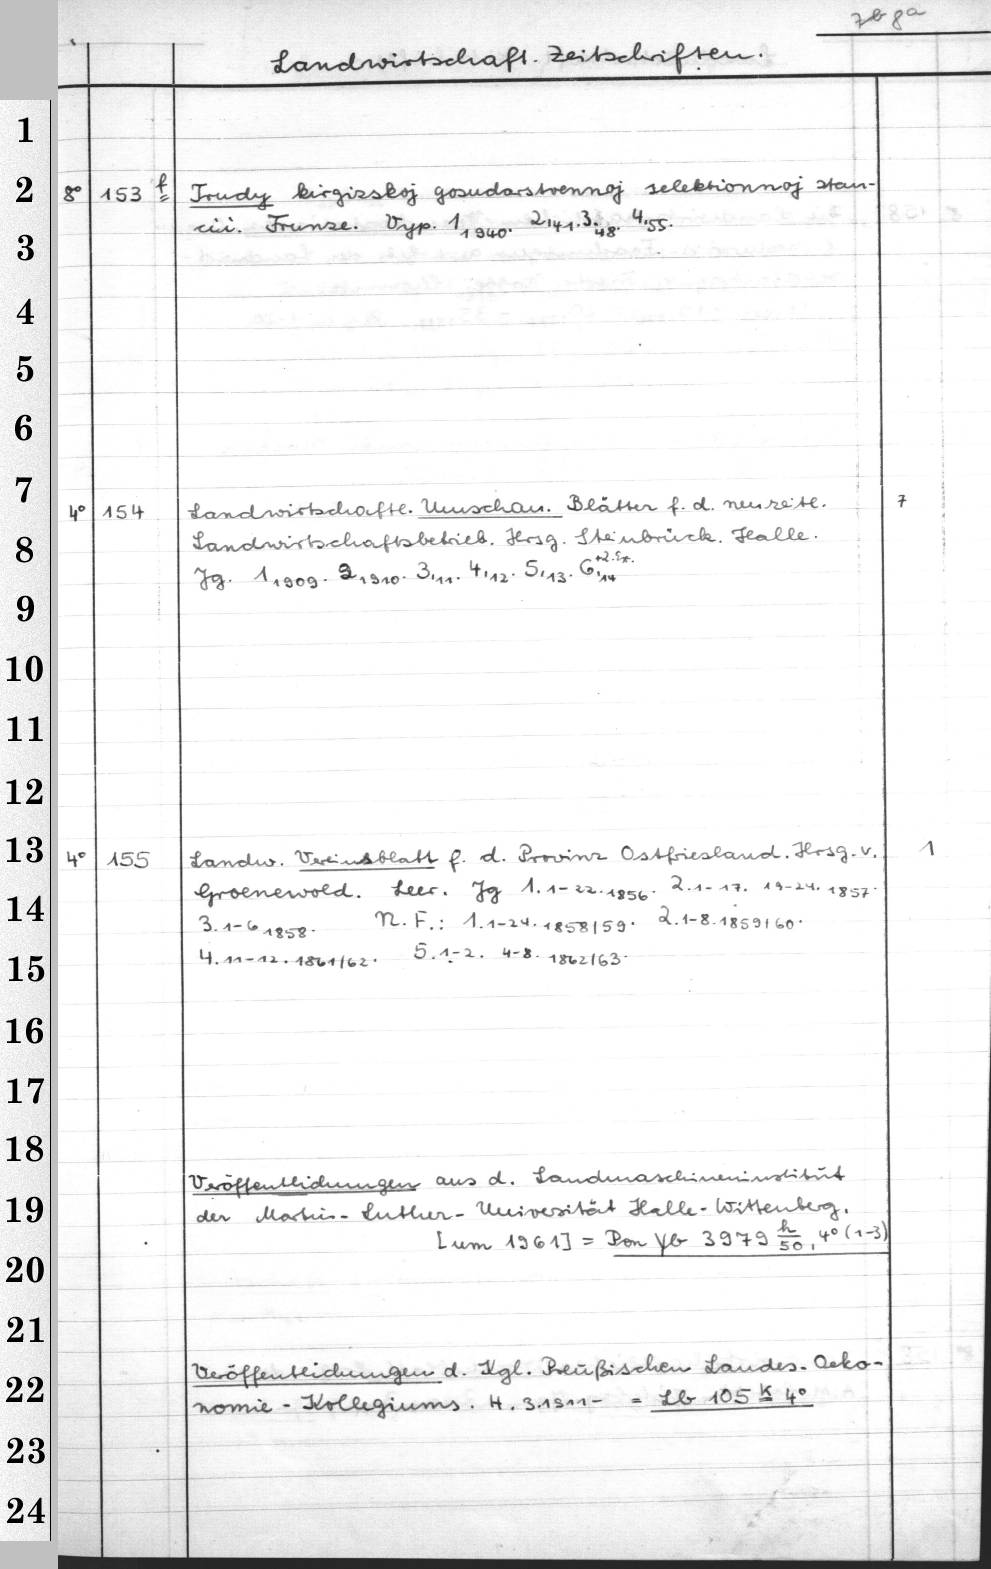 Landwirtschaft. Zeitschriften.
1
2 8° 153 f Trudy kirgizskoj gosudarstvennoj selektionnoj stan-
cii. Frunse. Vyp. 1,1940. 2,41. 3,48. 4,55.
3
4
5
6
7
4° 154 Landwirtschaftl. Umschau. Blätter f. d. neuzeitl. 7
8 Landwirtschaftsbetrieb. Hrsg. Steinbrück. Halle.
Jg. 1,1909. 2,1910. 3,11. 4,12. 5,13. 6,14 +2.Ex.
9
10
11
12
13 4° 155 Landw. Vereinsblatt f. d. Provinz Ostfriesland. Hrsg. v. 1
Groenewold. Leer. Jg 1.1-22.1856. 2.1-17. 19-24. 1857.
14 3.1-6 1858. N. F.: 1.1-24. 1858/59. 2.1-8. 1859/60.
15 4.11-12. 1861/62. 5.1-2. 4-8. 1862/63.
16
17
18
Veröffentlichungen aus d. Landmaschineninstitut
19 der Martin-Luther-Universität Halle-Wittenberg.
[um 1961] = Pon Yb 3979 h/50, 4° (1-3)
20
21
Veröffentlichungen d. Kgl. Preußischen Landes-Oeko-
22 nomie-Kollegiums. H. 3.1911- = Lb 105 k 4°
23
24